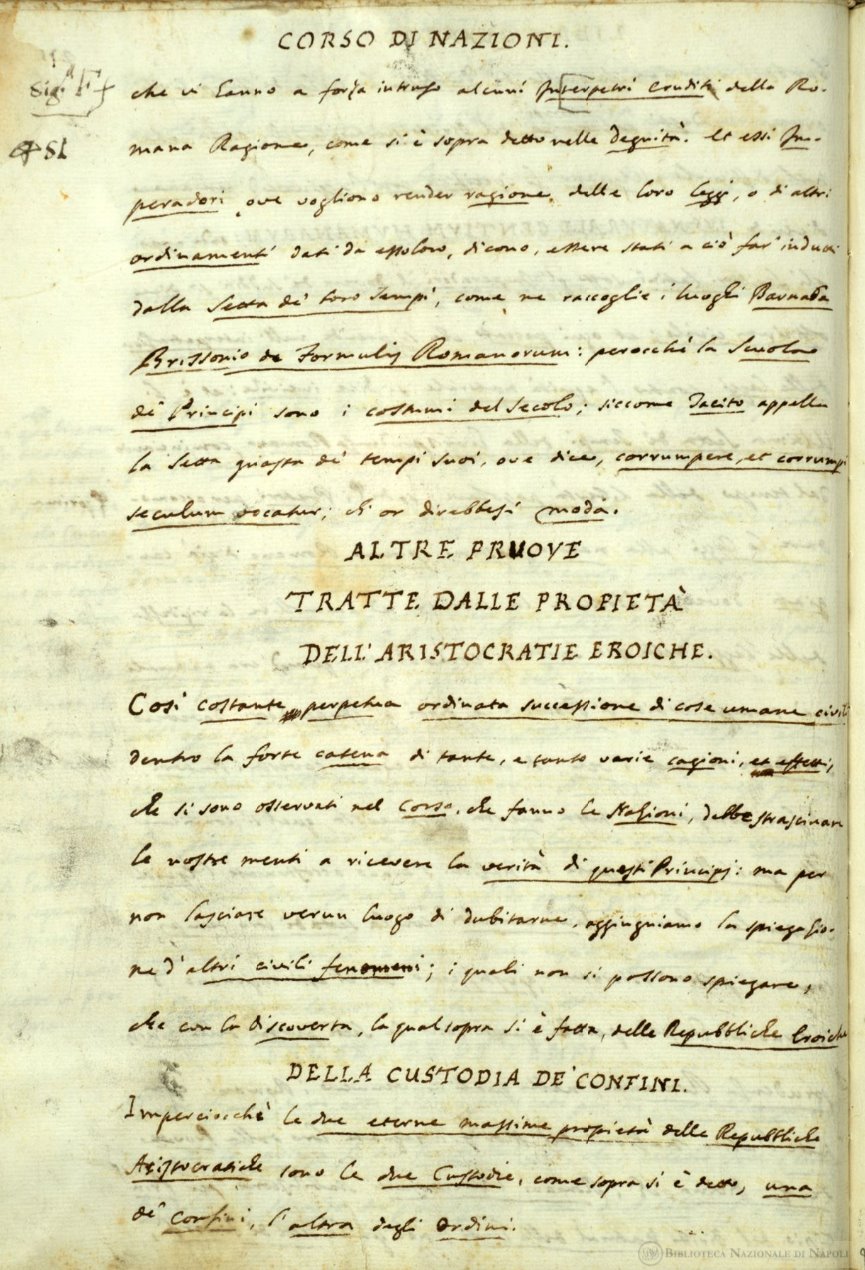 CORSO DI NAZIONI.
che vi hanno a forza intruso alcuni Interpetri eruditi della Ro-
mana Ragione, come si è sopra detto nelle Degnità. et essi Im-
peradori ove vogliono render ragione delle loro leggi, o di altri
ordinamenti dati da essoloro, dicono, essere stati a ciò far' indutti
dalla Setta de' loro tempi, come ne raccoglie i luoghi Barnaba
Brissonio de Formulis Romanorum: perocchè la Scuola
de' Principi sono i costumi del Secolo; siccome Tacito appella
la Setta guasta de' tempi suoi, ove dice, corrumpere, et corrumpi
seculum vocatur; ch' or direbbesi moda.
ALTRE PRUOVE
TRATTE DALLE PROPIETÀ
DELL' ARISTOCRATIE EROICHE.
Così costante perpetua ordinata successione di cose umane civili
dentro la forte catena di tante, e tanto varie cagioni, et effetti,
che si sono osservati nel Corso, che fanno le Nazioni, debbe strascinare
le nostre menti a ricevere la verità di questi Principj: ma per
non lasciare verun luogo di dubitarne, aggiugniamo la spiegazio-
ne d'altri civili fenomeni; i quali non si possono spiegare,
che con la Discoverta, la qual sopra si è fatta, delle Repubbliche Eroiche
DELLA CUSTODIA DE' CONFINI.
Imperciocchè le due eterne massime propietà delle Repubbliche
Aristocratiche sono le due Custodie, come sopra si è detto, una
de' Confini, l'altra degli Ordini.
BIBLIOTECA NAZIONALE DI NAPOLI